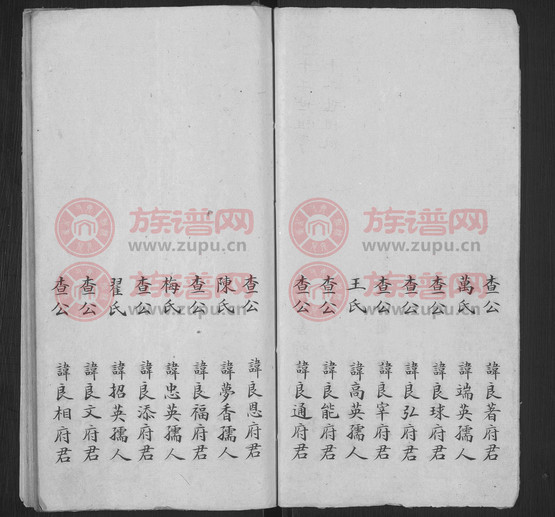 查公 諱良著府君
萬氏 諱端英孺人
查公 諱良球府君
查公 諱良弘府君
查公 諱良宰府君
王氏 諱高英孺人
查公 諱良能府君
查公 諱良通府君
查公 諱良恩府君
陳氏 諱夢香孺人
查公 諱良福府君
梅氏 諱忠英孺人
查公 諱良添府君
翟氏 諱招英孺人
查公 諱良文府君
查公 諱良相府君
族谱网
www.zupu.cn
族谱网
www.zupu.cn